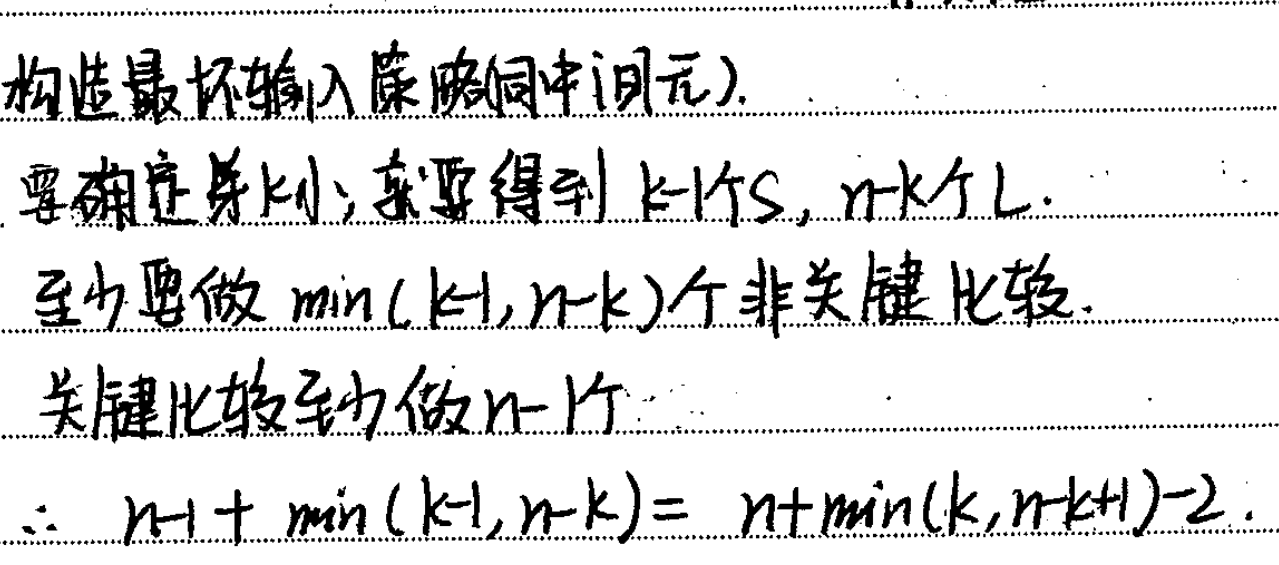 构造最坏输入策略(同中间元).
要确定第k小,就要得到 k-1个S, n-k个L.
至少要做 min(k-1, n-k)个非关键比较.
关键比较至少做n-1个
∴ n-1 + min(k-1, n-k) = n+min(k, n-k+1)-2.